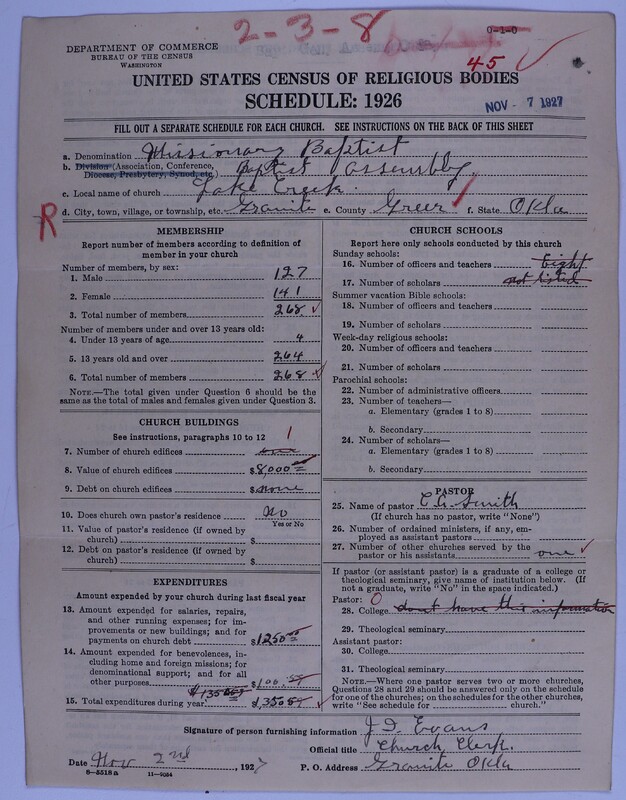 2-3-8
0-1-0
DEPARTMENT OF COMMERCE
BUREAU OF THE CENSUS
WASHINGTON
45
UNITED STATES CENSUS OF RELIGIOUS BODIES
SCHEDULE: 1926
NOV - 7 1927
FILL OUT A SEPARATE SCHEDULE FOR EACH CHURCH. SEE INSTRUCTIONS ON THE BACK OF THIS SHEET
a. Denomination Missionary Baptist
b. Division (Association, Conference, Diocese, Presbytery, Synod, etc.) Baptist Assembly
c. Local name of church Lake Creek
R
d. City, town, village, or township, etc. Granite e. County Greer f. State Okla
MEMBERSHIP
Report number of members according to definition of
member in your church
Number of members, by sex:
1. Male 127
2. Female 141
3. Total number of members 268
Number of members under and over 13 years old:
4. Under 13 years of age 4
5. 13 years old and over 264
6. Total number of members 268
NOTE.—The total given under Question 6 should be
the same as the total of males and females given under Question 3.
CHURCH BUILDINGS
See instructions, paragraphs 10 to 12
1
7. Number of church edifices one
8. Value of church edifices $8,000.00
9. Debt on church edifices $ none
10. Does church own pastor's residence No
Yes or No
11. Value of pastor's residence (if owned by
church) $
12. Debt on pastor's residence (if owned by
church) $
EXPENDITURES
Amount expended by your church during last fiscal year
13. Amount expended for salaries, repairs,
and other running expenses; for im-
provements or new buildings; and for
payments on church debt $1250.00
14. Amount expended for benevolences, in-
cluding home and foreign missions; for
denominational support; and for all
other purposes $100
$1350
15. Total expenditures during year $1350
CHURCH SCHOOLS
Report here only schools conducted by this church
Sunday schools:
16. Number of officers and teachers Eight
17. Number of scholars not listed
Summer vacation Bible schools:
18. Number of officers and teachers
19. Number of scholars
Week-day religious schools:
20. Number of officers and teachers
21. Number of scholars
Parochial schools:
22. Number of administrative officers
23. Number of teachers—
a. Elementary (grades 1 to 8)
b. Secondary
24. Number of scholars—
a. Elementary (grades 1 to 8)
b. Secondary
PASTOR
25. Name of pastor C. A. Smith
(If church has no pastor, write "None")
26. Number of ordained ministers, if any, em-
ployed as assistant pastors
27. Number of other churches served by the
pastor or his assistants one
If pastor (or assistant pastor) is a graduate of a college or
theological seminary, give name of institution below. (If
not a graduate, write "No" in the space indicated.)
Pastor: 0
28. College dont have this information
29. Theological seminary
Assistant pastor:
30. College
31. Theological seminary
NOTE.—Where one pastor serves two or more churches,
Questions 28 and 29 should be answered only on the schedule
for one of the churches; on the schedules for the other churches,
write "See schedule for church."
Signature of person furnishing information J. D. Evans
Official title Church Clerk.
Date Nov 2nd, 1927 P. O. Address Granite Okla
8-5518a 11-9064